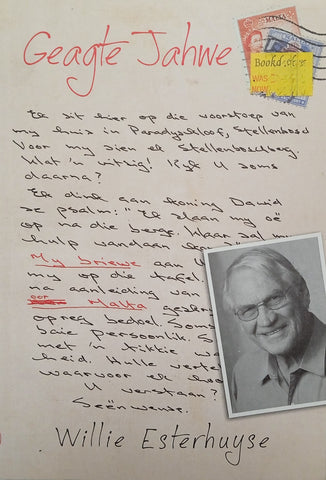 Geagte Jahwe
MALTA
WAS
NOW
Ek sit hier op die voorstoep van
my huis in Paradyskloof, Stellenbosch
Voor my sien ek Stellenboschberg.
Wat 'n uitsig! Kyk U soms
daarna?
Ek dink aan koning Dawid
se psalm: "Ek slaan my oë
op na die berge. Waar sal my
hulp vandaan
My briewe aan
my op die tafel
na aanleiding van
oor Malta
opreg bedoel. Soms
baie persoonlik. S
met 'n tikkie
heid. Hulle
waarvoor ek
U verstaan?
Seënwense.
Willie Esterhuyse